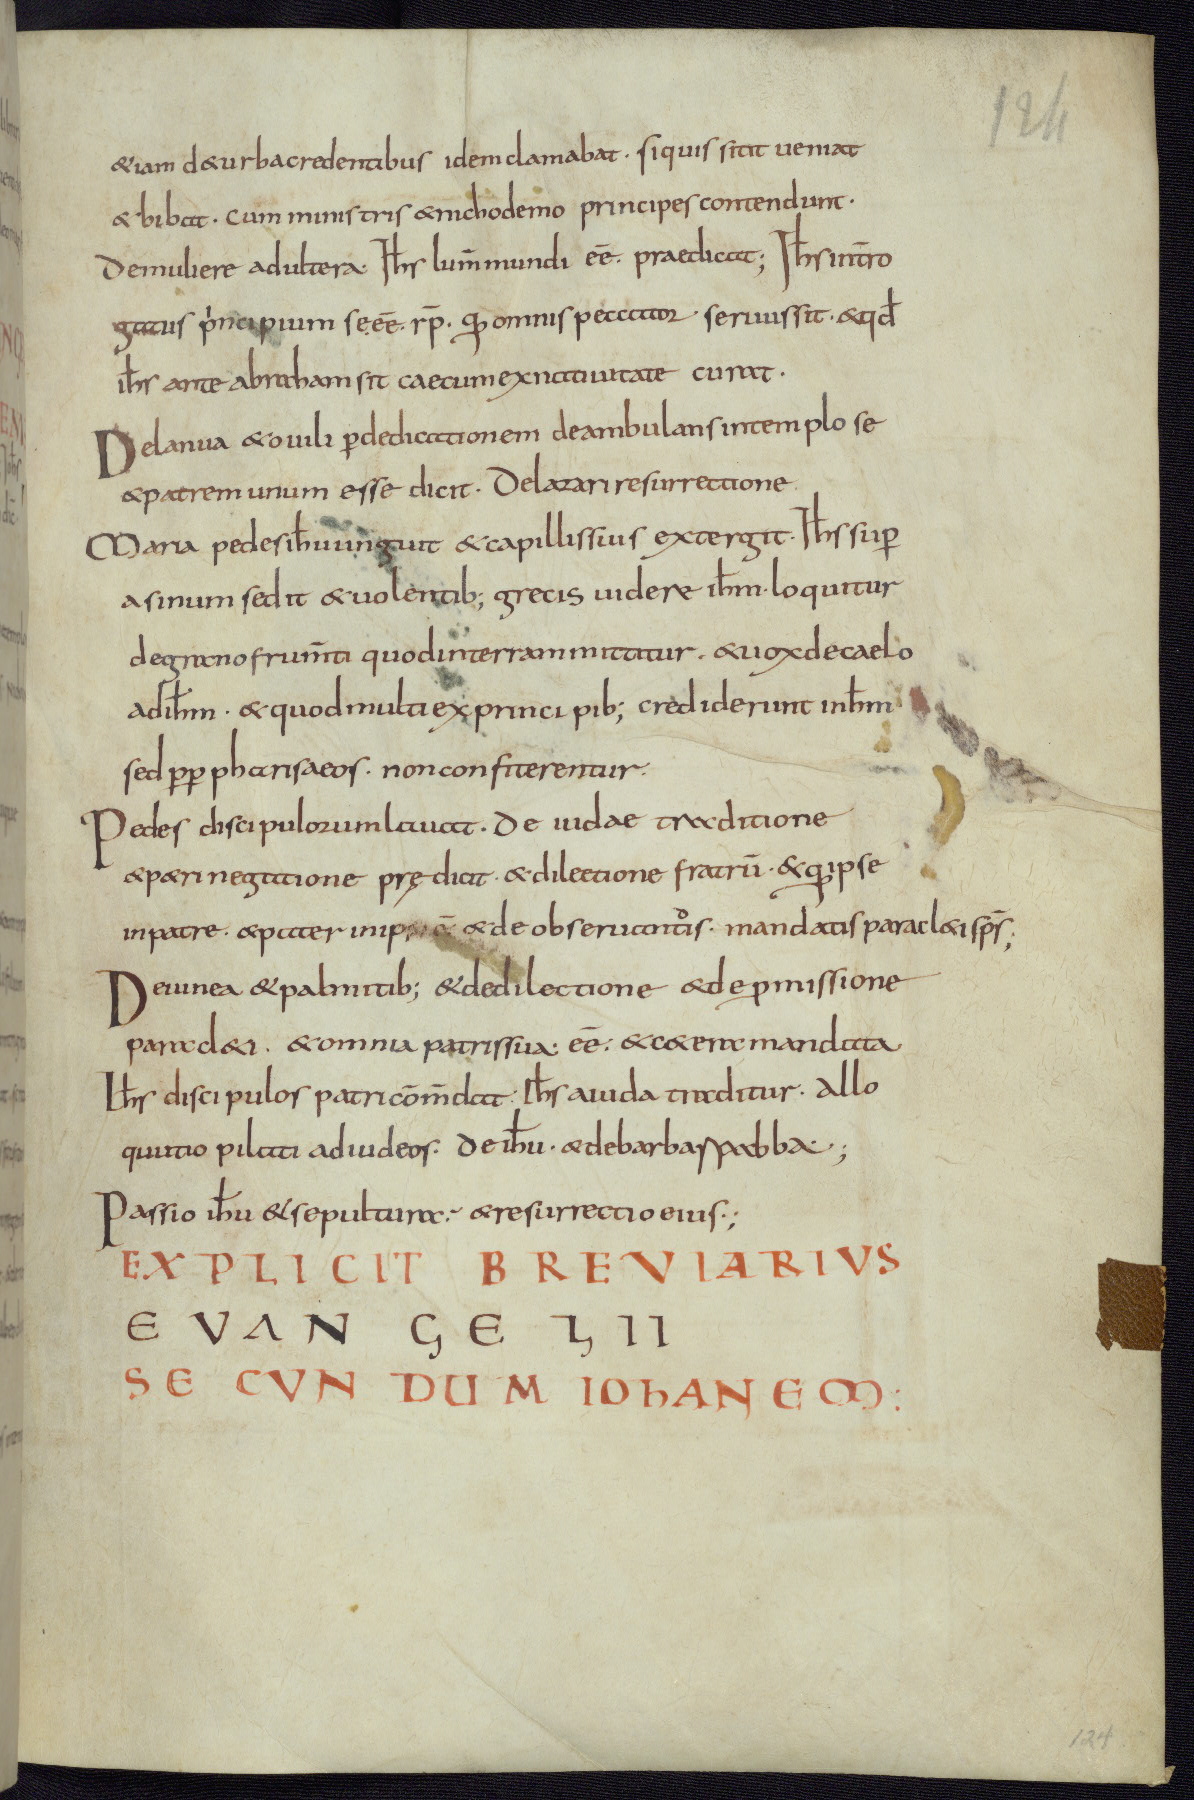 124
&iam d&urba credentibus idem clamabat · siquis sitit ueniat
& bibat · cum ministris & nichodemo principes contendunt ·
De muliere adultera · Ih̅s lum̅ mundi ee̅ · praedicat ; Ih̅s int̅ro
gatus principium se ee̅ · rp̅ · qm̅ omnis peccator seruus sit · & qd̅
ih̅s ante abraham sit caecum ex natiuitate curat ·
De ianua & ouili p̲ dedicationem deambulans in templo se
& patrem unum esse dicit · De lazari resurrectione
Maria pedes ih̅u unguit & capillis suis extergit · Ih̅s sup̲
asinum sedit & uolentib; grecis uidere ih̅m · loquitur
de grano frum̅ti quod in terram mittitur · & uox de caelo
ad ih̅m · & quod multi ex principib; crediderunt in ih̅m
sed pp̲ pharisaeos · non confiterentur ·
Pedes discipulorum lauat · De iudae traditione
& p&ri negatione prędicit · & dilectione fratru̅ · & qm̅ ipse
in patre · & pater in & de obseruantoris · mandatis paracl&i sp̅s ;
De uinea & palmitib; & de dilectione & de p̲missione
paracl&i · & omnia patris sua ee̅ · & c&era mandata
Ih̅s discipulos patri co̅m̅dat · Ih̅s a iuda traditur · Allo
quutio pilati ad iudeos · De ih̅u · & de barbarrabba · ;
Passio ih̅u & sepultura · & resurrectio eius · ;
EXPLICIT BREVIARIVS
EVANGELII
SECVNDUM IOHANEM :
124